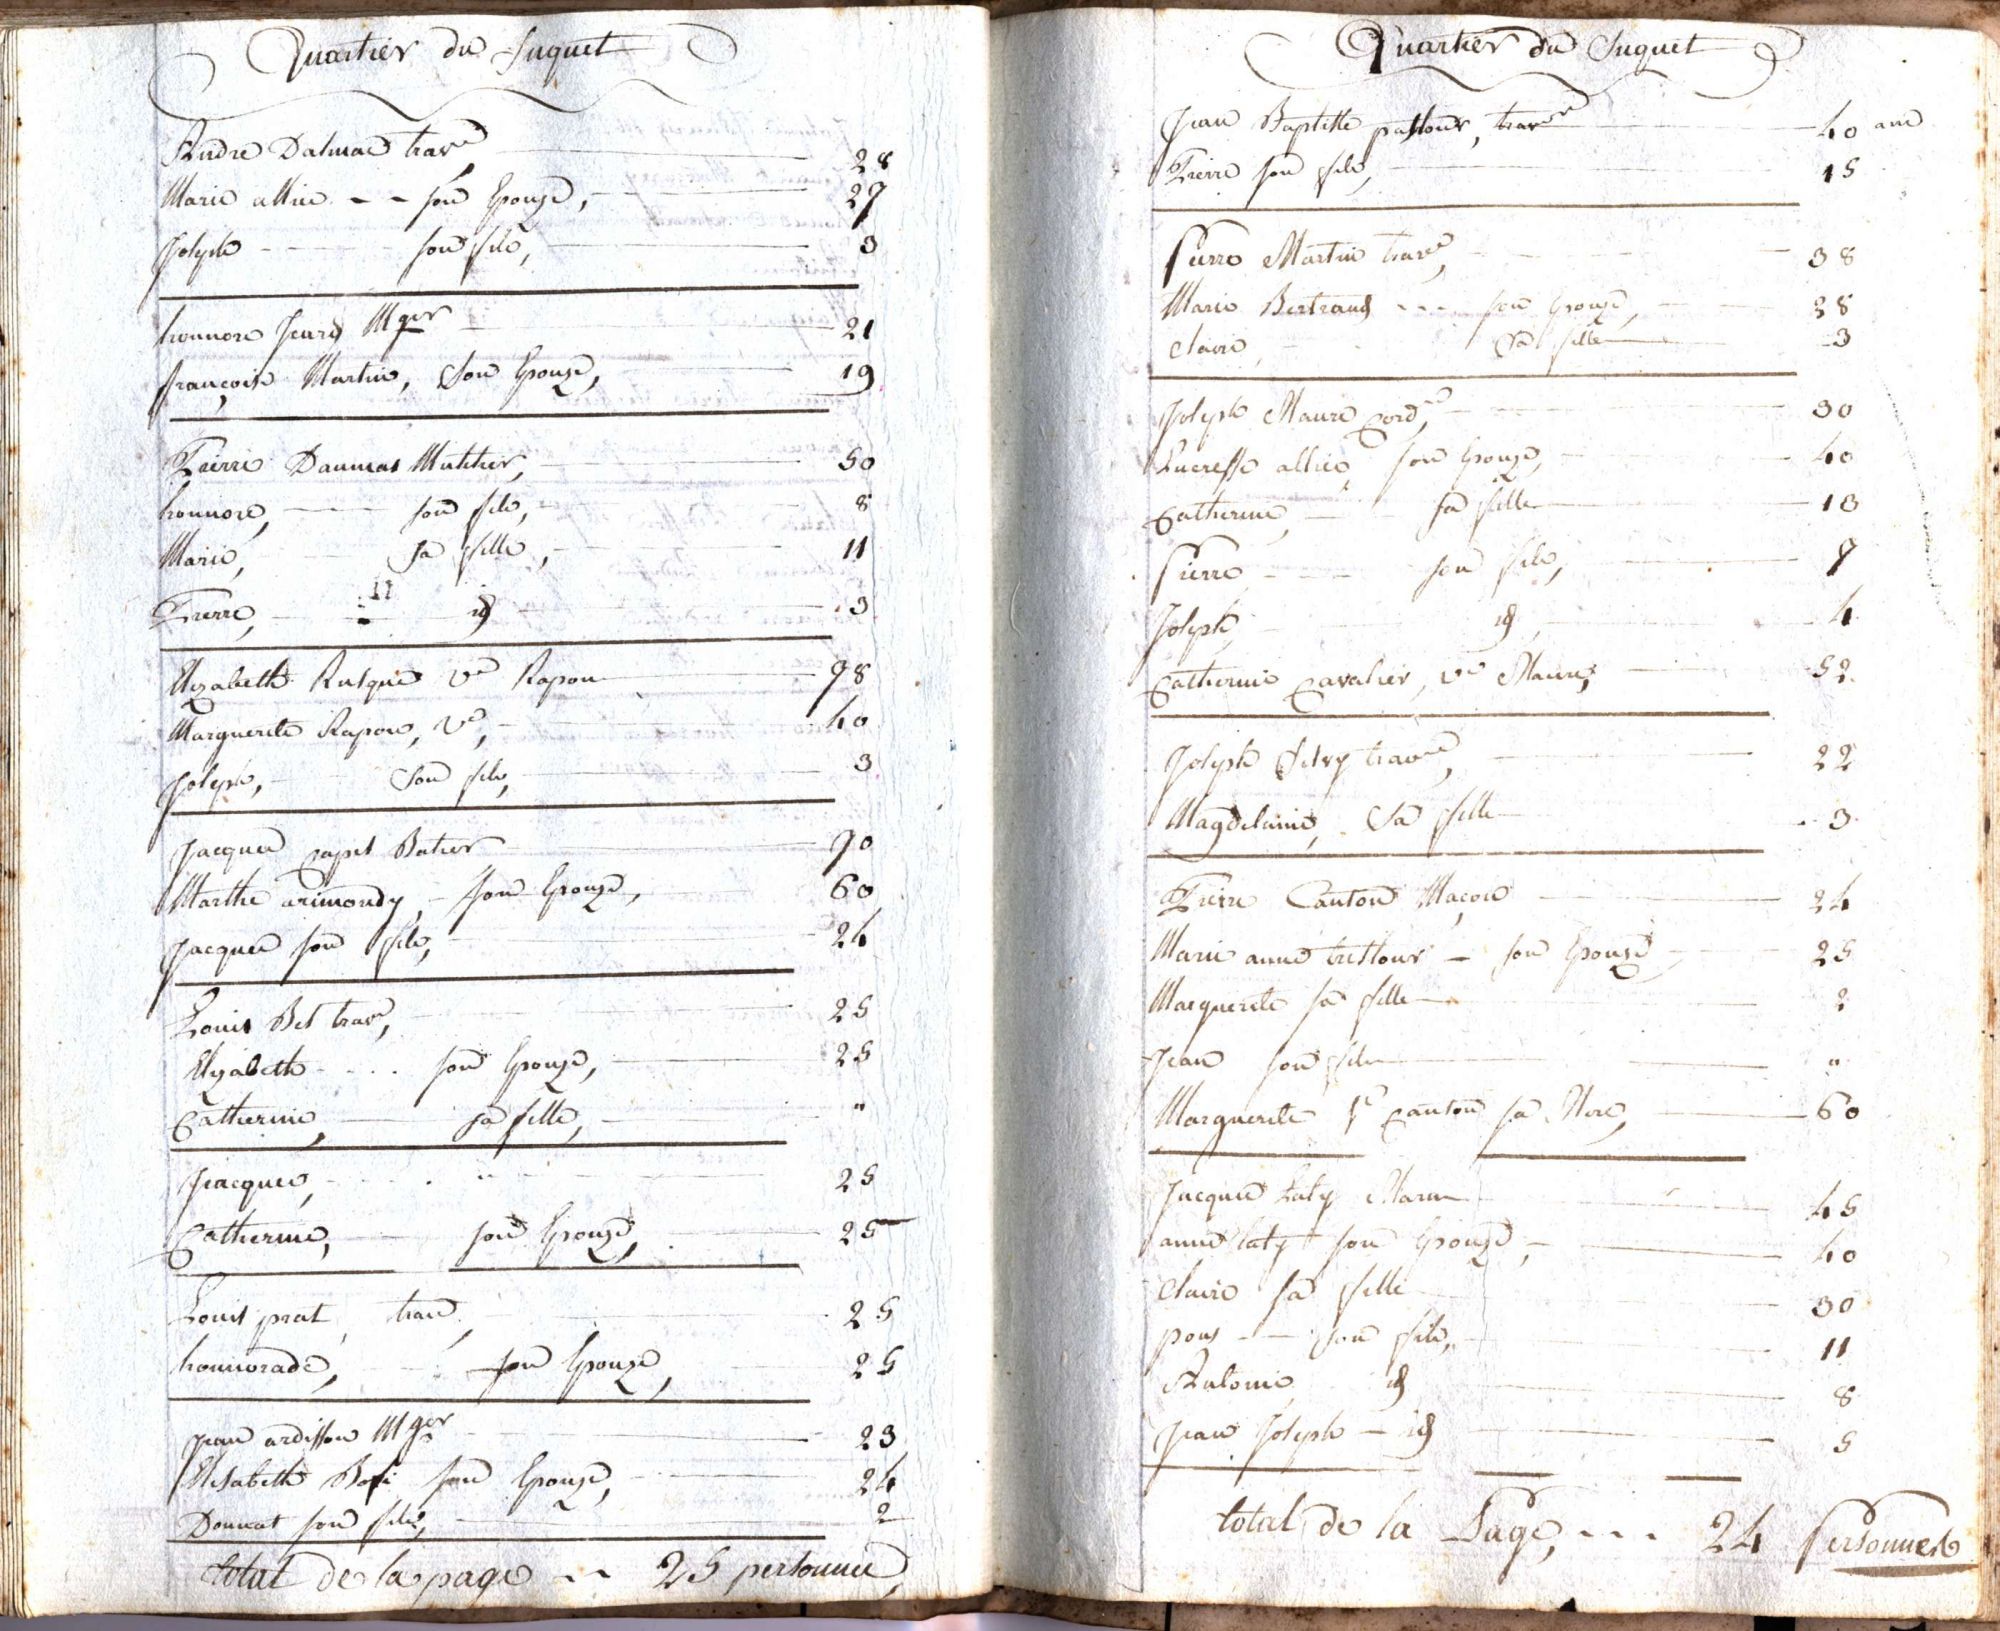 Quartier du Suquet
Andre Dalmac trav.r 28
Marie allie son Epouze, 27
Joseph son fils, 3
honnore Jeard Mger 21
françoise Martin, Son Epouze, 19
Pierre Daumas 50
honnore, son fils, 8
Marie, sa fille, 11
Pierre, id 3
Elizabeth Rusque ve Rapon 78
Marguerite Rapon, ve, 40
Joseph, Son fils, 3
Jacques capel Batier 70
Marthe arimondy son Epouze, 60
Jacques son fils, 24
Louis Bel trav.r, 25
Elizabeth son Epouze, 25
Catherine, sa fille, "
Jacques, 25
Catherine, son Epouze, 25
Louis prat, trav 25
honnorade, son Epouze, 25
Jean ardisson Mger 23
Elisabeth son Epouze, 24
Donnat son fils, 2
total de la page 25 personnes
Quartier du Suquet
Jean Baptiste pastour, trav.r 40 ans
Pierre son fils, 15
Pierre Martin trav.r, 38
Marie Bertrand son Epouze, 38
claire, Sa fille 3
Joseph Maure cord.r, 30
Lucresse allie, son Epouze, 40
Catherine, sa fille 13
Pierre, son fils, 7
Joseph, id, 4
Catherine Cavalier, ve Maure, 52
Joseph Silvy trav.r, 22
Magdelaine, Sa fille 3
Pierre Canton Maçon 24
Marie anne tristour son Epouze 25
Marguerite sa fille 2
Jean son fils "
Marguerite canton sa Mere, 60
Jacques Laty Marin 45
anne Laty son Epouze, 40
Claire sa fille 30
pons son fils, 11
Antoine id 8
Jean Joseph id 5
total de la Page, 24 Personnes